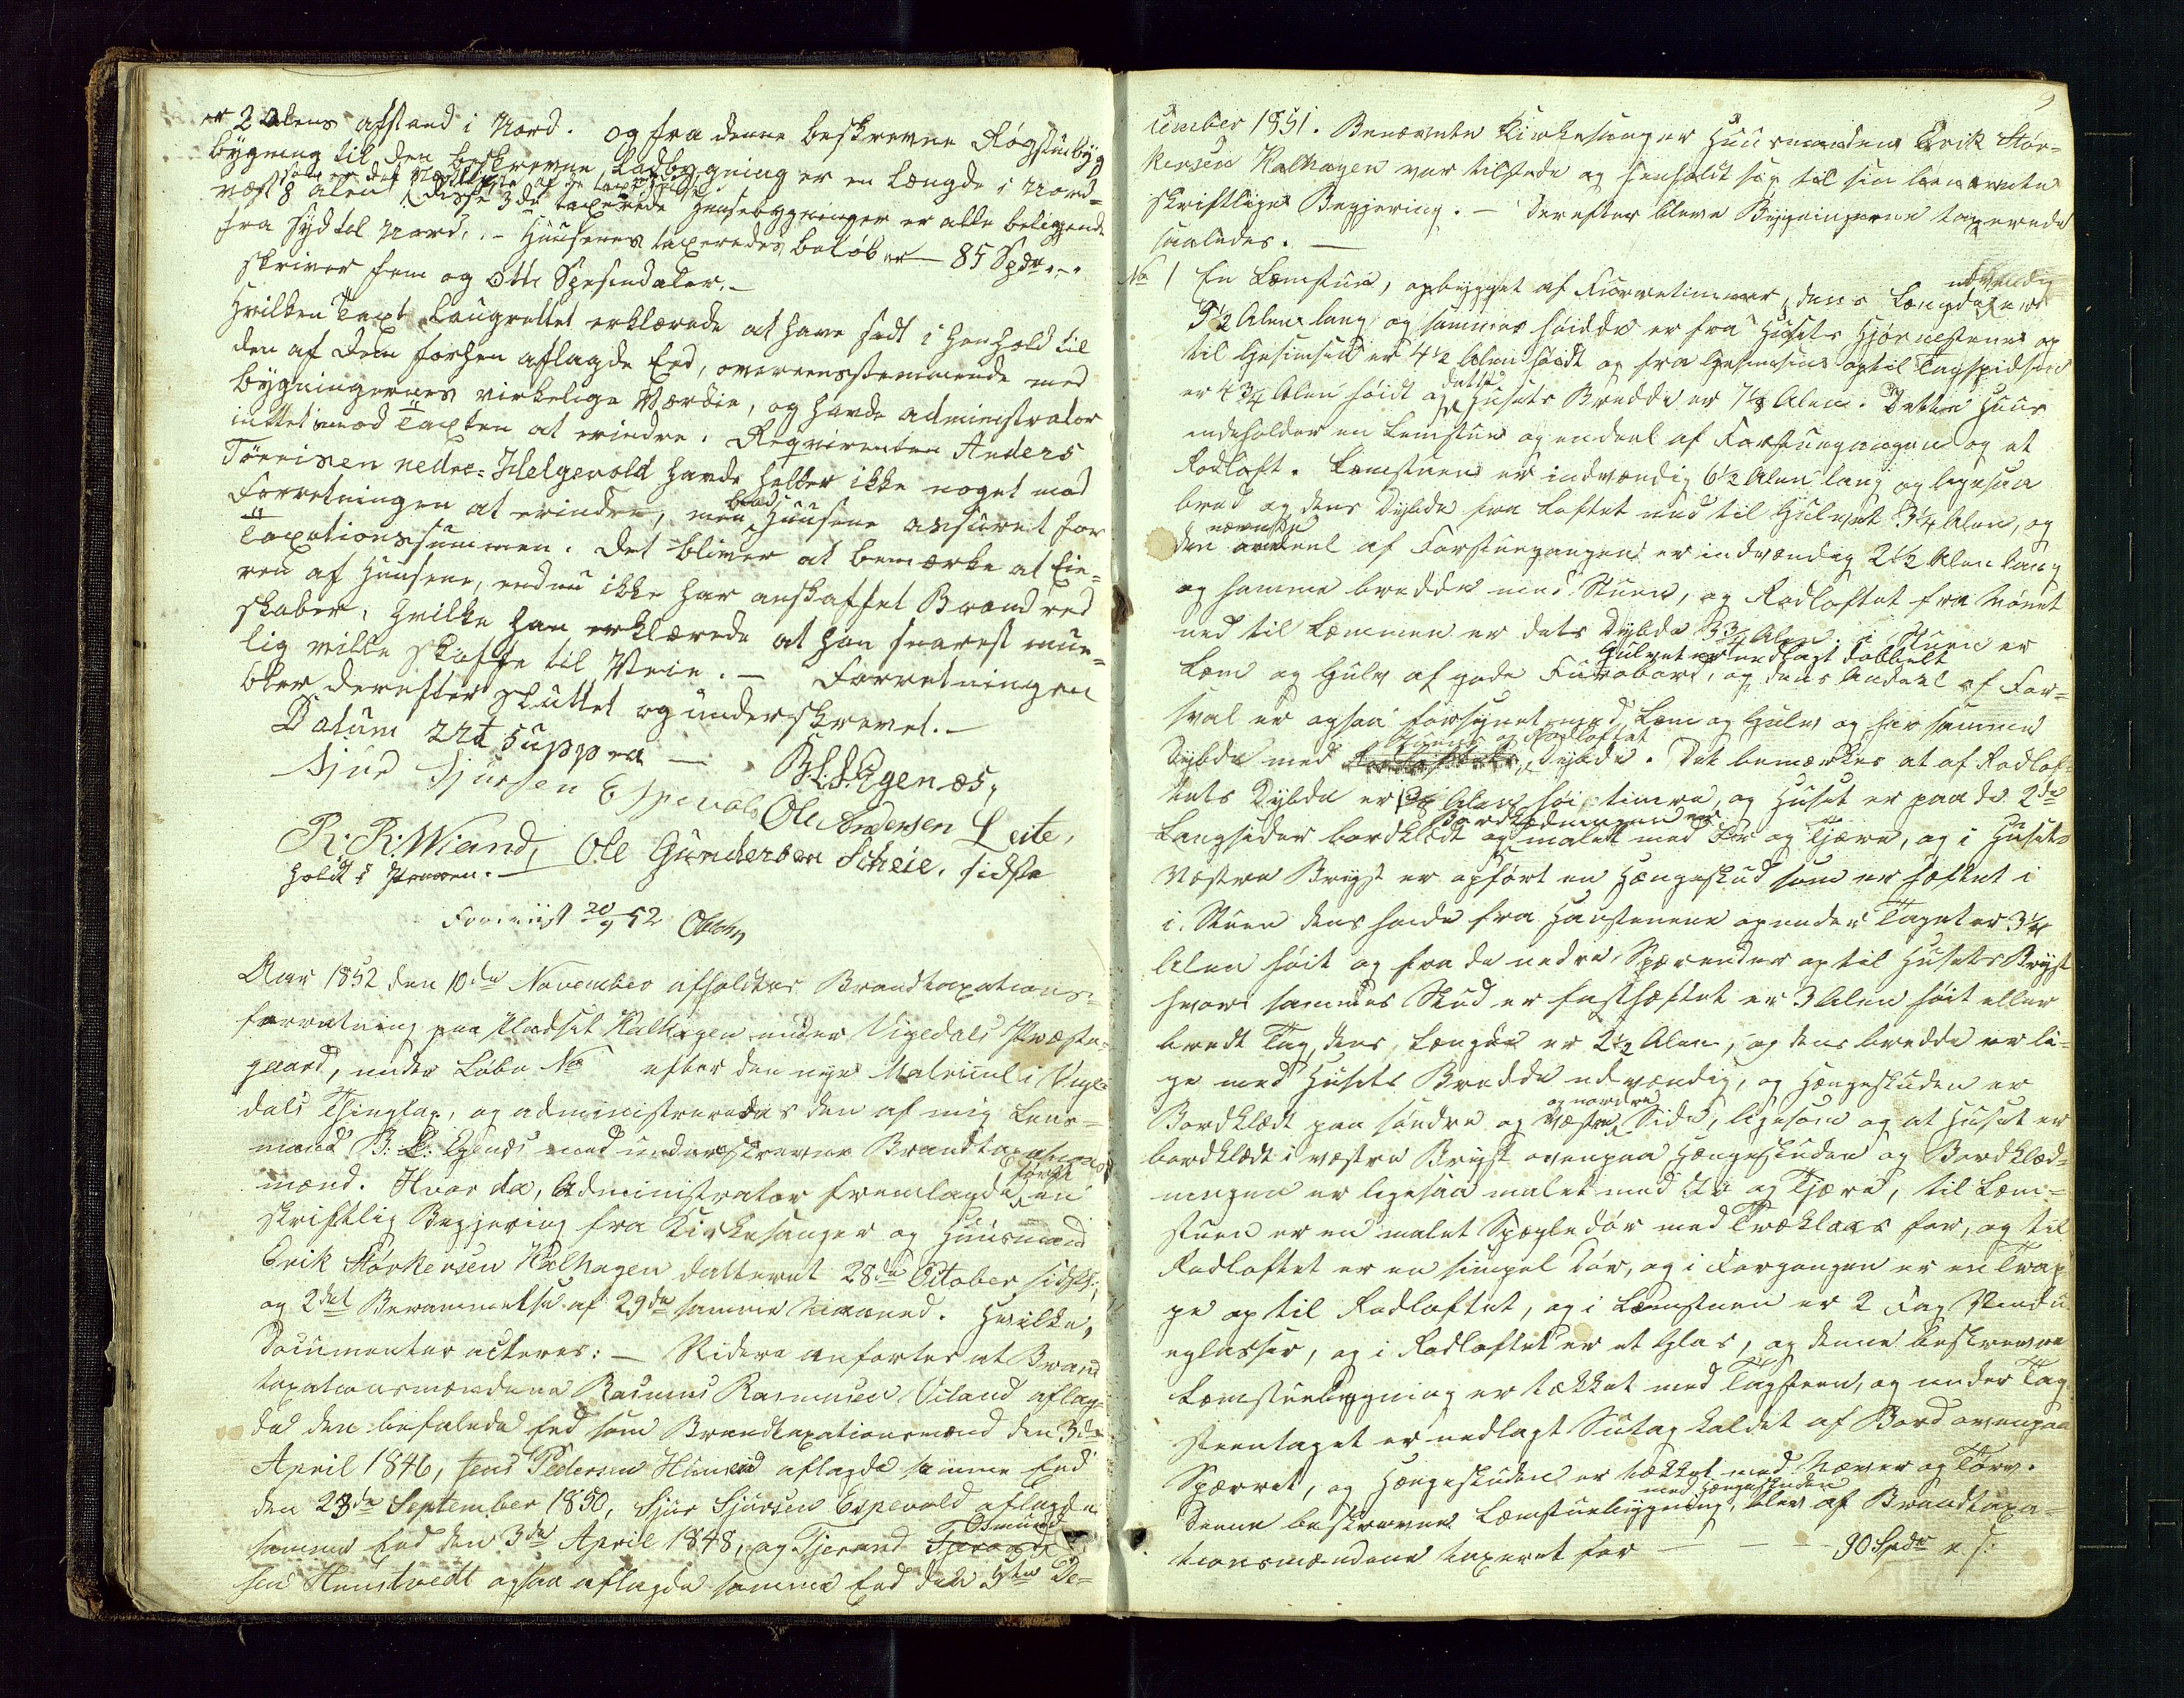 er 2 Alens afstand i Nord. og fra denne beskrevne Røgstuebyg
bygning til den beskrevne Ladbygning er en Længde i Nord=
væst 8 Alen disse 3de taxerede Huusebygninger er alle beliggende
fra Syd til Nord. – Huusenes taxerede beløb er – 85 Spdr. –
skriver fem og otti Spesiedaler. –
Hvilken Taxt Laugrettet erklærede at have sadt i Henhold til
den af Dem forhen aflagde Eed, overeensstemmende med
bygningernes virkelige Værdie, og havde administrator
inttet imod Taxten at erindre. Reqvirenten Anders
Tørrisen nedre=Helgevold havde heller ikke noget mod
Forretningen at erindre, men bad Huusene assuret for
Taxationssummen. Det bliver at bemærke at Eie=
ren af Huusene, endnu ikke har anskaffet Brandred
skaber, hvilke han erklærede at han snarest mue=
lig ville skaffe til Veie. – Forretningen
blev derefter sluttet og underskrevet. –
Datum ut suppra – B: L. Egenæs,
Sjur Sjursen Espevold Ole Andersen Leite,
R: R: Wiland, Ole Gundersen Scheie, sidste
holdt i Pennen. –
Foreviist 20/9 52
Aar 1852 den 10de November afholdtes Brandtaxations=
forretning paa Pladset Kalhagen under Vigedals Præste=
gaard, under Løbe No efter den nye Matricul i Vige
dals Thinglag, og administreredes den af mig Lens=
mand B: L: Egenæs med underskrevne Brandtaxations
mænd. Hvor da, Administrator fremlagde først en
skriftlig Begjering fra Kirkesanger og Huusmand
Erik Størkersen Kalhagen datteret 28de October sidstl:,
og 2det Berammelse af 29de samme Maaned. Hvilke,
Documenter acteres: – Videre anførtes at Brand
taxationsmændene Rasmus Rasmusen Viland aflag=
de den befalede Eed som Brandtaxationsmand den 3de
April 1846, Jens Pedersen aflagde samme Eed
den 28de September 1850, Sjur Sjursen Espevold aflagde
samme Eed den 3de April 1848, og Tjerand Osmund
sen Hunstvedt ogsaa aflagde samme Eed den 9de De=
9
cember 1851. Benævnte Kirkesanger Huusmanden Erik Stør=
kersen Kalhagen var tilstede og henholdt sig til sin benævnte
skriftlige Begjering. – Derefter bleve Bygningerne taxerede
saaledes. –
No 1 En Læmstue, opbygget af Furretimmer, dens Længde udvendig er
9½ Alen lang og sammes høidde er fra Husets Hjørnestene op
til Gesimsen er 4½ Alen høidt og fra Gesimsen optil Tagspidsen
er 4¾ Alen høidt og dette Husets Bredde er 7½ Alen. Dette Huus
indeholder en Lemstue og endeel af Forstuegangen og et
Rodloft. Læmstuen er indvændig 6½ Alen lang og ligesaa
bred og dens Dybde fra Loftet ned til Gulvet 3¼ Alen, og
den nævnte andeel af Forstuegangen er indvændig 2½ Alen lang
og samme bredde med Stuen, og Rodloftet fra Mønet
ned til Læmmen er dets Dybde 3¾ Alen. i Stuen er
Læm og Gulv af gode Furrebord, Gulvet er nedlagt dobbelt og dens Andeel af For=
sval er ogsaa forsynet med Læm og Gulv og har samme
Dybde med Stuens og Rodloftet Dybde. Det bemærkes at af Rodlof=
tets Dybde er 1¾ Alen høi timre, og Huset er paa de 2de
Langsider bordklædt og Bordklædningen er malet med Tjære, og i Husets
Væstre Bryst er opført en Hængeskud som er hæftet i
i Stuen dens høide fra Haustenene op under Taget er 3¼
Alen høit og fra de nedre Spærender op til Husets Bryst
hvor sammes Skud er fasthæftet er 3 Alen høit eller
bredt Tag, dens Længde er 2½ Alen, og dens bredde er li=
ge med Husets Bredde udvændig, og Hængeskuden er
Bordklædt paa søndre og Væstre og nordre Side, ligesom og at Huset er
bordklædt i væstre Bryst ovenpaa Hængeskuden og Bordklæd=
ningen er ligesaa malet med og Tjære, til Læm=
stuen er en malet Speiledør med Træklaas for, og til
Rodloftet er en simpel Dør, og i Forgangen er en Trap
pe op til Rodloftet, og i Læmstuen er 2 Fag Vindu
eglasser, og i Rodloftet er et Glas, og denne beskrevne
Læmstuebygning er tækket med Tagsteen, og under Tag
steentaget er nedlagt Sutag kaldet af Bord ovenpaa
Spærret, og Hængeskuden er tækket med Næver og Torv.
Denne beskrevne Læmstuebygning med Hængeskuden blev af Brandtaxa
tionsmændene taxeret for – – – 90 Spdr